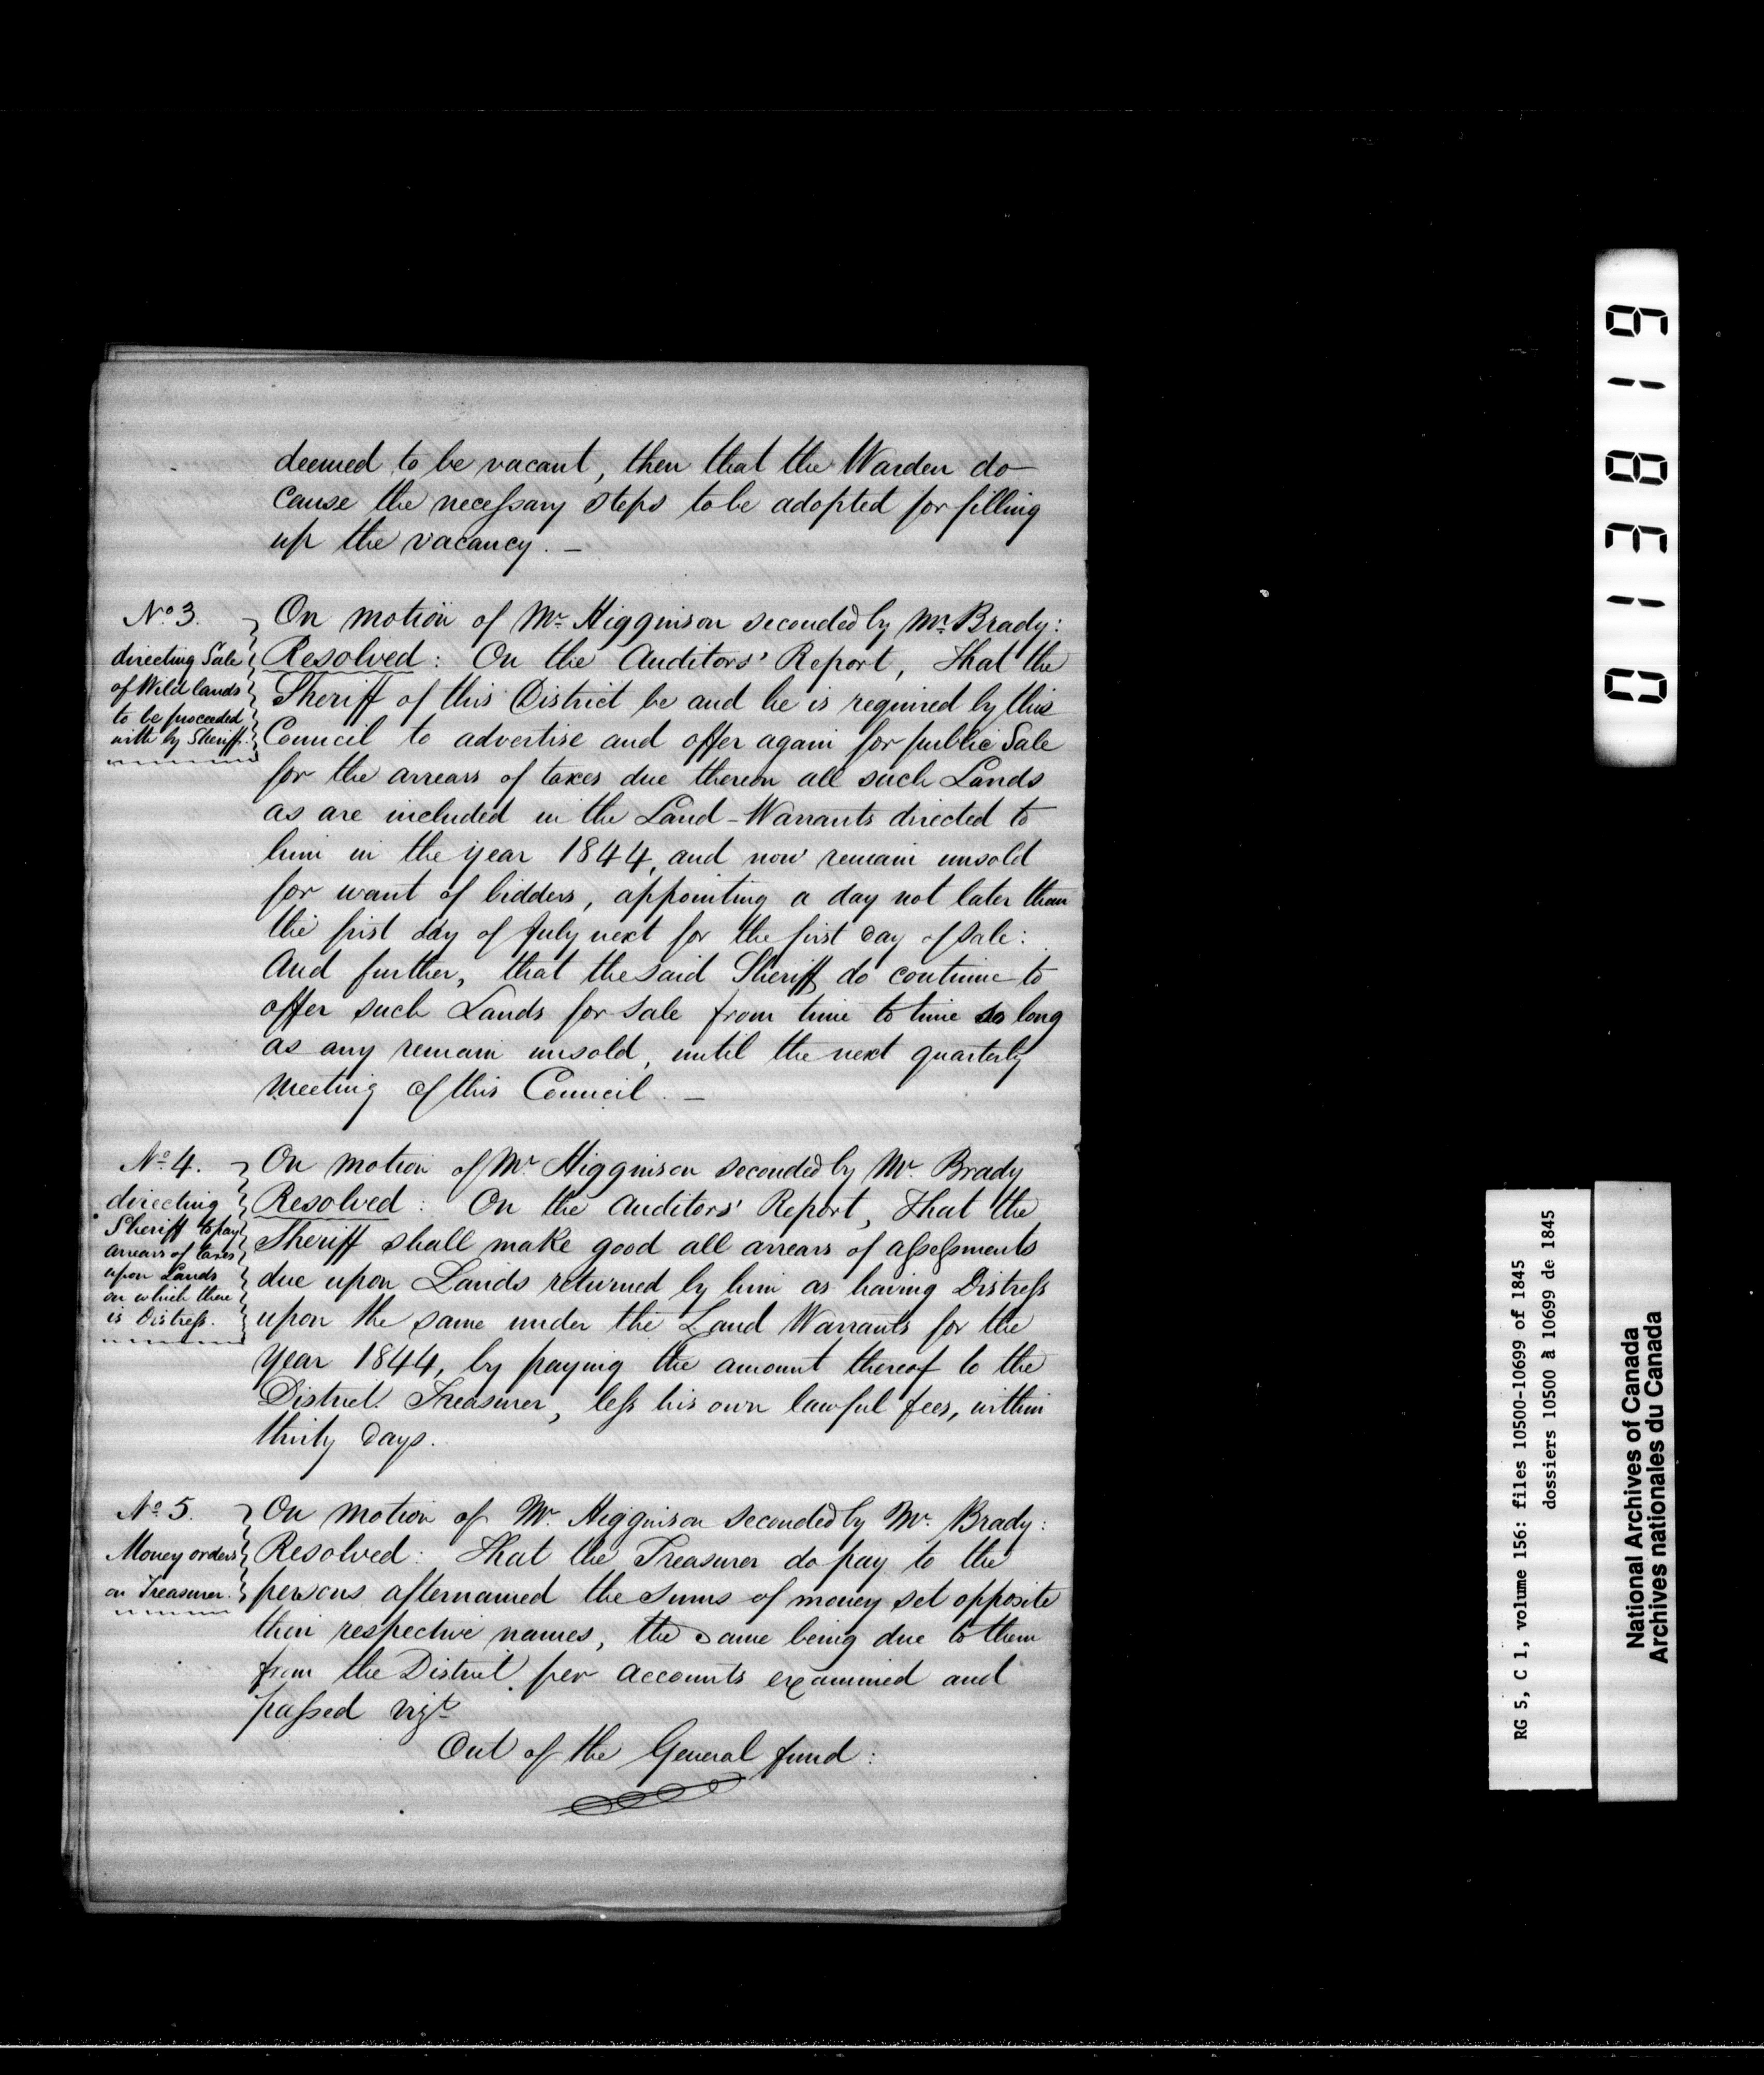 deemed to be vacant, then that the Warden do
cause the necessary steps to be adopted for filling
up the vacancy. —
No 3.
directing Sale
of Wild lands
to be proceeded
with by Sheriff.
On motion of Mr Higginson seconded by Mr Brady:
Resolved: On the Auditors' Report, that the
Sheriff of this District be and he is required by this
Council to advertise and offer again for public Sale
for the arrears of taxes due thereon all such Lands
as are included in the Land-Warrants directed to
him in the year 1844, and now remain unsold
for want of bidders, appointing a day not later than
the first day of July next for the first day of sale:
And further, that the said Sheriff do continue to
offer such Lands for sale from time to time so long
as any remain unsold, until the next quarterly
meeting of this Council. —
No 4.
directing
Sheriff to pay
arrears of taxes
upon Lands
on which there
is Distress.
On motion of Mr Higginson seconded by Mr Brady
Resolved: On the Auditors' Report, that the
Sheriff shall make good all arrears of assessments
due upon Lands returned by him as having Distress
upon the same under the Land Warrants for the
year 1844, by paying the amount thereof to the
District Treasurer, less his own lawful fees, within
thirty days.
No 5.
Money orders
on Treasurer.
On motion of Mr. Higginson seconded by Mr. Brady:
Resolved: That the Treasurer do pay to the
persons afternamed the sums of money set opposite
their respective names, the same being due to them
from the District per accounts examined and
passed vizt
Out of the General fund:
013819
RG 5, C 1, volume 156: files 10500-10699 of 1845
dossiers 10500 à 10699 de 1845
National Archives of Canada
Archives nationales du Canada